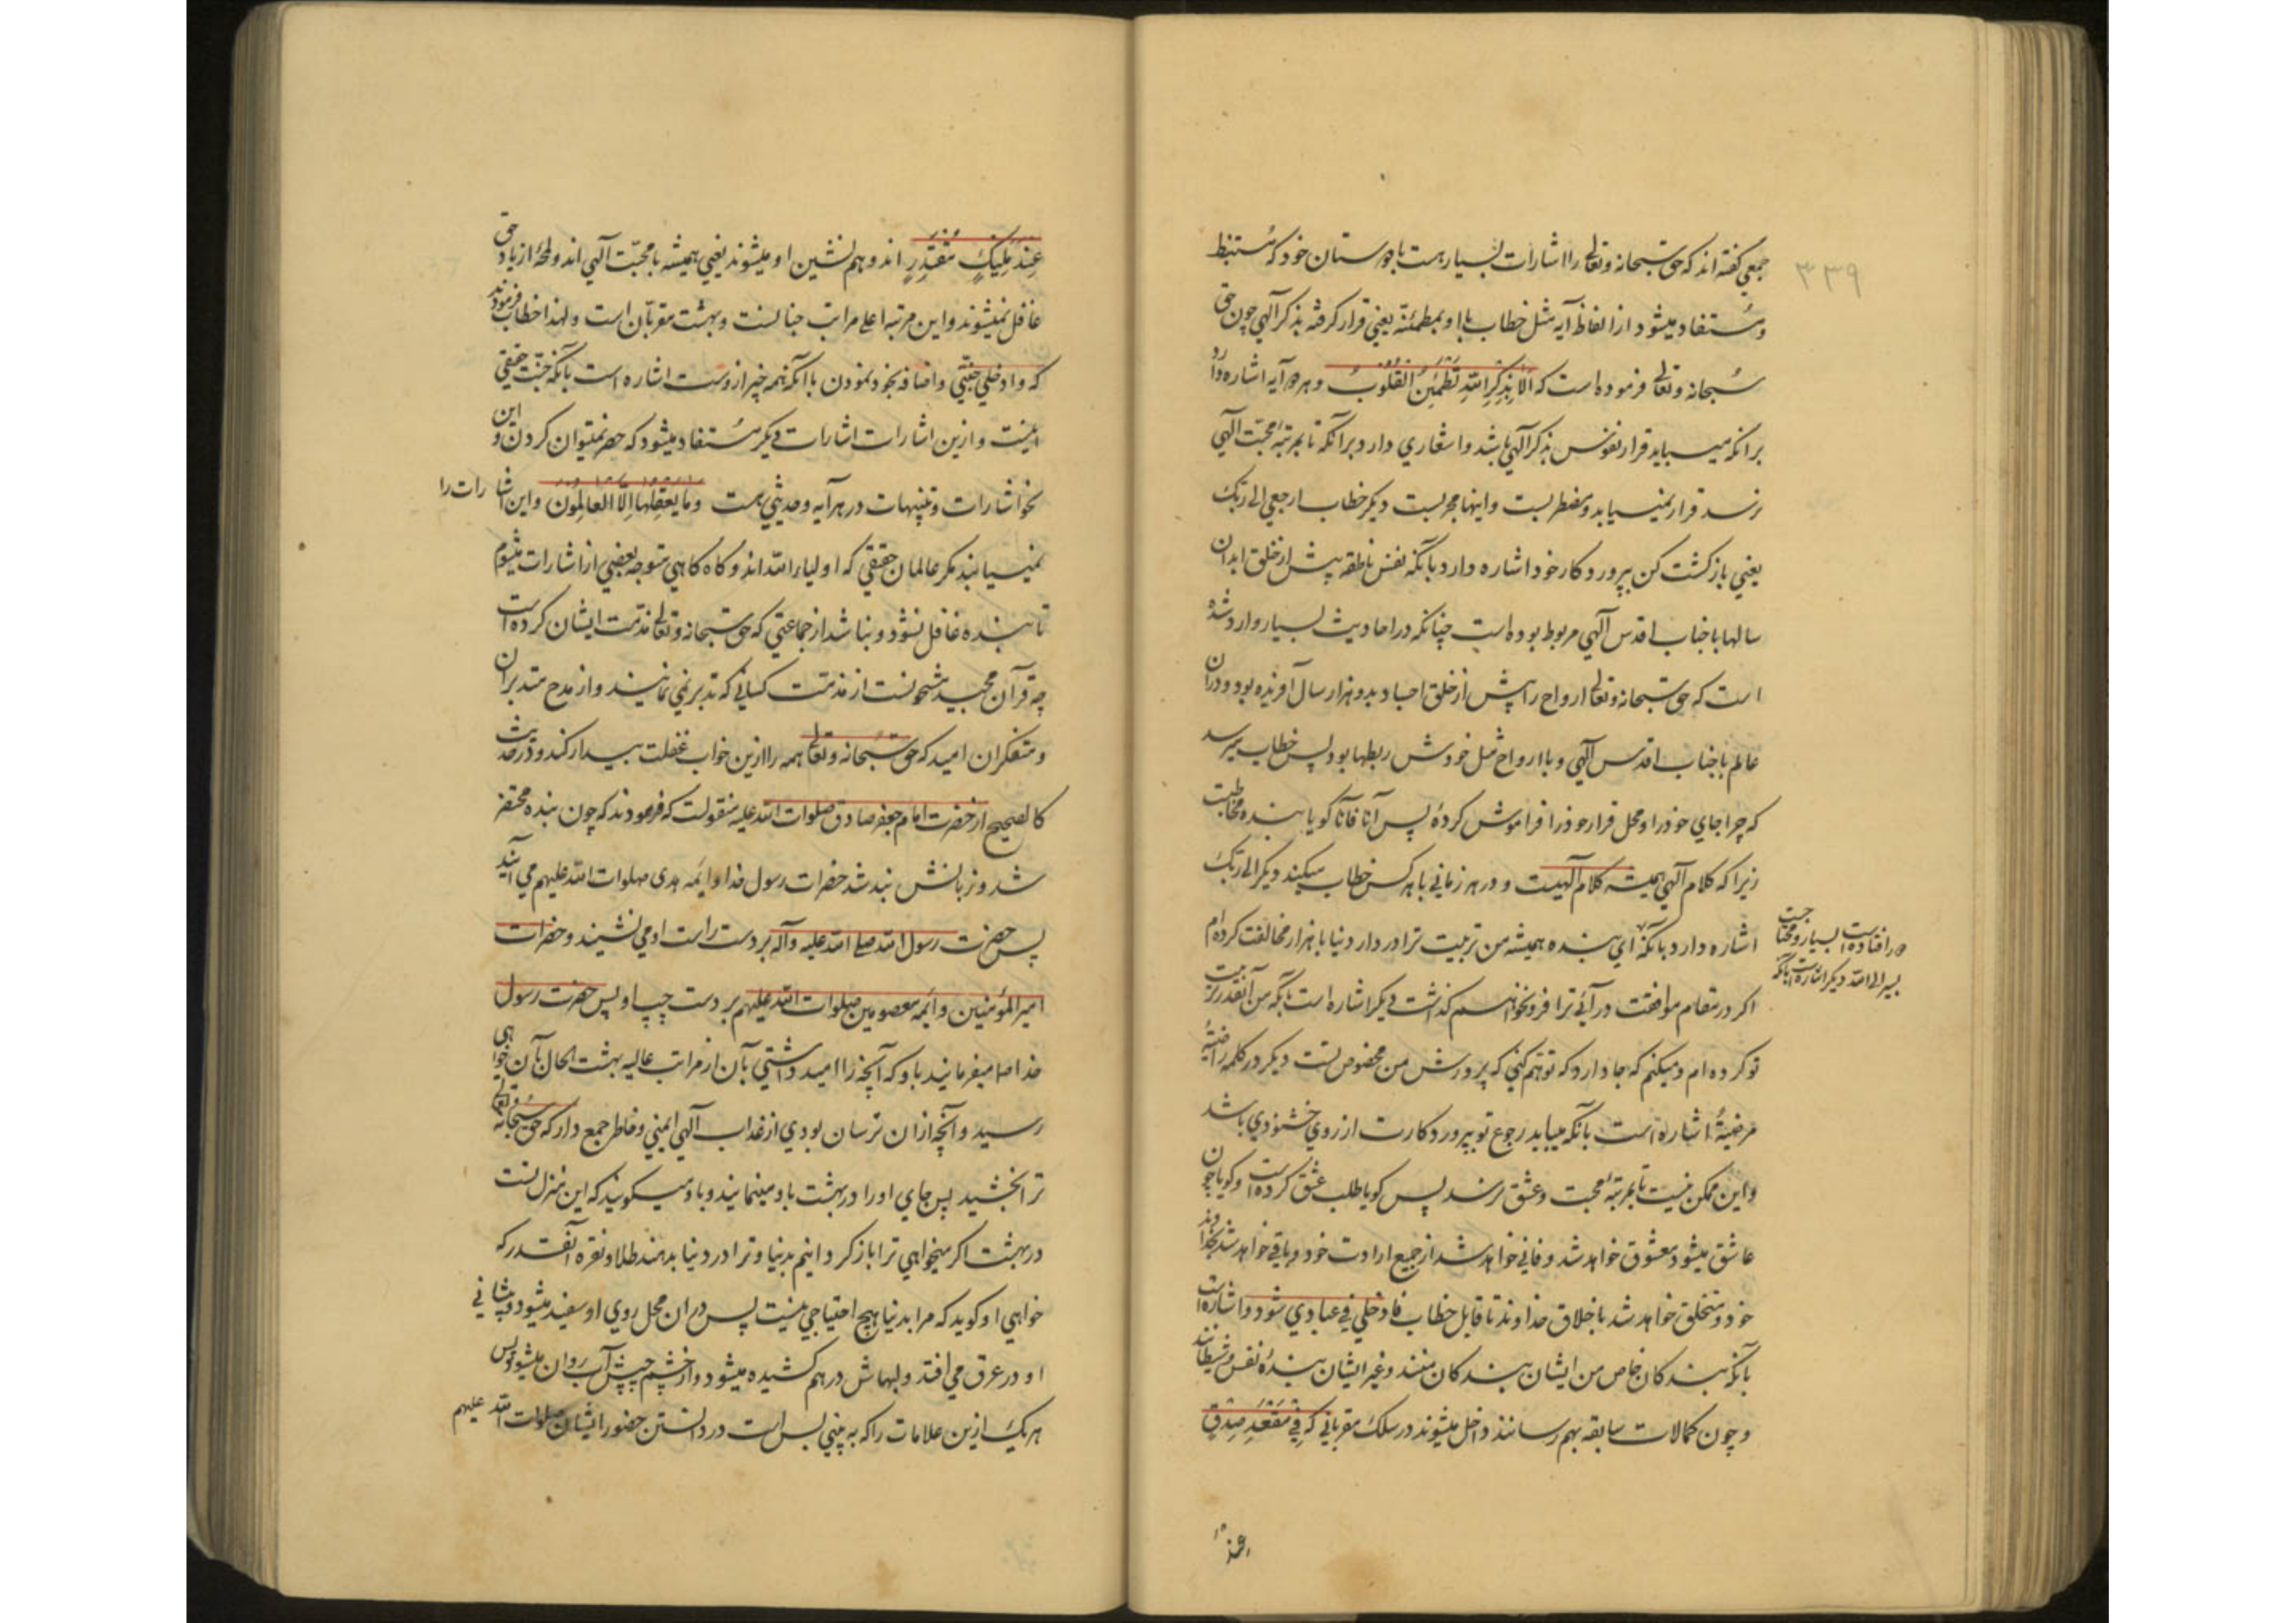 ۳۳۹
جمعی گفته اند که حق سبحانه و تعالی را اشارات بسیار هست با دوستان خود که مستنبط
و مستفاد میشود از الفاظ آیه مثل خطاب با او بمطمئنه یعنی قرار گرفته بذکر آلهی چون حق
سبحانه و تعالی فرموده است که الا بذکر الله تطمئن القلوب و هر دو آیه اشاره دارد
بر انکه میباید قرار نفوس بذکر آلهی باشد و اشعاری دارد بر انکه تا بمرتبهٔ محبت آلهی
نرسد قرار نمییابد و مضطربست و اینها مجربست دیگر خطاب ارجعی الی ربک
یعنی بازگشت کن بپروردگار خود اشاره دارد بآنکه نفس ناطقه پیش از خلق ابدان
سالها با جناب اقدس آلهی مربوط بوده است چنانکه در احادیث بسیار وارد شده
است که حق سبحانه و تعالی ارواح را پیش از خلق اجساد بدو هزار سال آفریده بود و در آن
عالم با جناب اقدس آلهی و با ارواح مثل خودش ربطها بود پس خطاب میرسد
که چرا جای خود را و محل قرار خود را فراموش کردهٔ پس آنا فآنا گویا بنده مخاطبست
زیرا که کلام آلهی همیشه کلام آلهیست و در هر زمانی با هر کس خطاب میکند دیگر الی ربک
اشاره دارد بآنکه ای بنده همیشه من تربیت ترا در دار دنیا با هزار مخالفت کرده ام
اگر در مقام موافقت در آئی ترا فرو نخواهم گذاشت دیگر اشاره است بآنکه من آنقدر تربیت
تو کرده ام و میکنم که جا دارد که توهم کنی که پرورش من مخصوص تست دیگر در کلمه راضیةً
مرضیةً اشاره است بآنکه میباید رجوع تو بپروردگارت از روی خشنودی باشد
و این ممکن نیست تا بمرتبهٔ محبت و عشق نرسد پس گویا طلب عشق کرده است و گویا چون
عاشق میشود معشوق خواهد شد و فانی خواهد شد از جمیع ارادت خود و باقی خواهد شد بخداوند
خود و متخلق خواهد شد باخلاق خداوند تا قابل خطاب فادخلی فی عبادی شود و اشاره است
بآنکه بندگان خاص من ایشان بندگان منند و غیر ایشان بندهٔ نفس و شیطانند
و چون کمالات سابقه بهم رسانند داخل میشوند در سلک مقربانی که فی مقعد صدق
عند
عند ملیک مقتدر اند و هم نشین او میشوند یعنی همیشه با محبت آلهی اند و لمحهٔ از یاد حق
غافل نمیشوند و این مرتبه اعلی مراتب جنانست و بهشت مقربان است و لهذا خطاب فرمودند
که وادخلی جنتی و اضافه بخود نمودن با آنکه همه چیز ازوست اشاره است بآنکه جنت حقیقی
اینست و ازین اشارات اشارات دیگر مستفاد میشود که حصر نمیتوان کردن و این
نحو اشارات و تنبیهات در هر آیه و حدیثی هست وما یعقلها الا العالمون و این اشارات را
نمییابند مگر عالمان حقیقی که اولیاء الله اند و گاه گاهی متوجه بعضی از اشارات میشوم
تا بنده غافل نشود و نباشد از جماعتی که حق سبحانه و تعالی مذمت ایشان کرده است
چه قرآن مجید مشحونست از مذمت کسانی که تدبر نمی نمایند و از مدح متدبران
و متفکران امید که حق سبحانه و تعالی همه را ازین خواب غفلت بیدار کند و در حدیث
کالصحیح از حضرت امام جعفر صادق صلوات الله علیه منقولست که فرمودند که چون بنده محتضر
شد و زبانش بند شد حضرات رسول خدا و ائمه هدی صلوات الله علیهم می آیند
پس حضرت رسول الله صلی الله علیه وآله بر دست راست او می نشیند و حضرات
امیر المؤمنین و ائمه معصومین صلوات الله علیهم بر دست چپ او پس حضرت رسول
خدا ص میفرمایند باو که آنچه را امید داشتی بآن از مراتب عالیه بهشت الحال بآن خواهی
رسید و آنچه ازان ترسان بودی از عذاب آلهی ایمنی و خاطر جمع دار که حق سبحانه و تعالی
ترا بخشید پس جای او را در بهشت باو مینمایند و باو میگویند که این منزل تست
در بهشت اگر میخواهی ترا باز گردانیم بدنیا و ترا در دنیا بدهند طلا و نقره آنقدر که
خواهی او گوید که مرا بدنیا هیچ احتیاجی نیست پس در ان محل روی او سفید میشود و پیشانی
او در عرق می افتد و لبهاش در هم کشیده میشود و از چشم چپش آب روان میشود پس
هر یک ازین علامات را که به بینی بس است در دانستن حضور ایشان صلوات الله علیهم